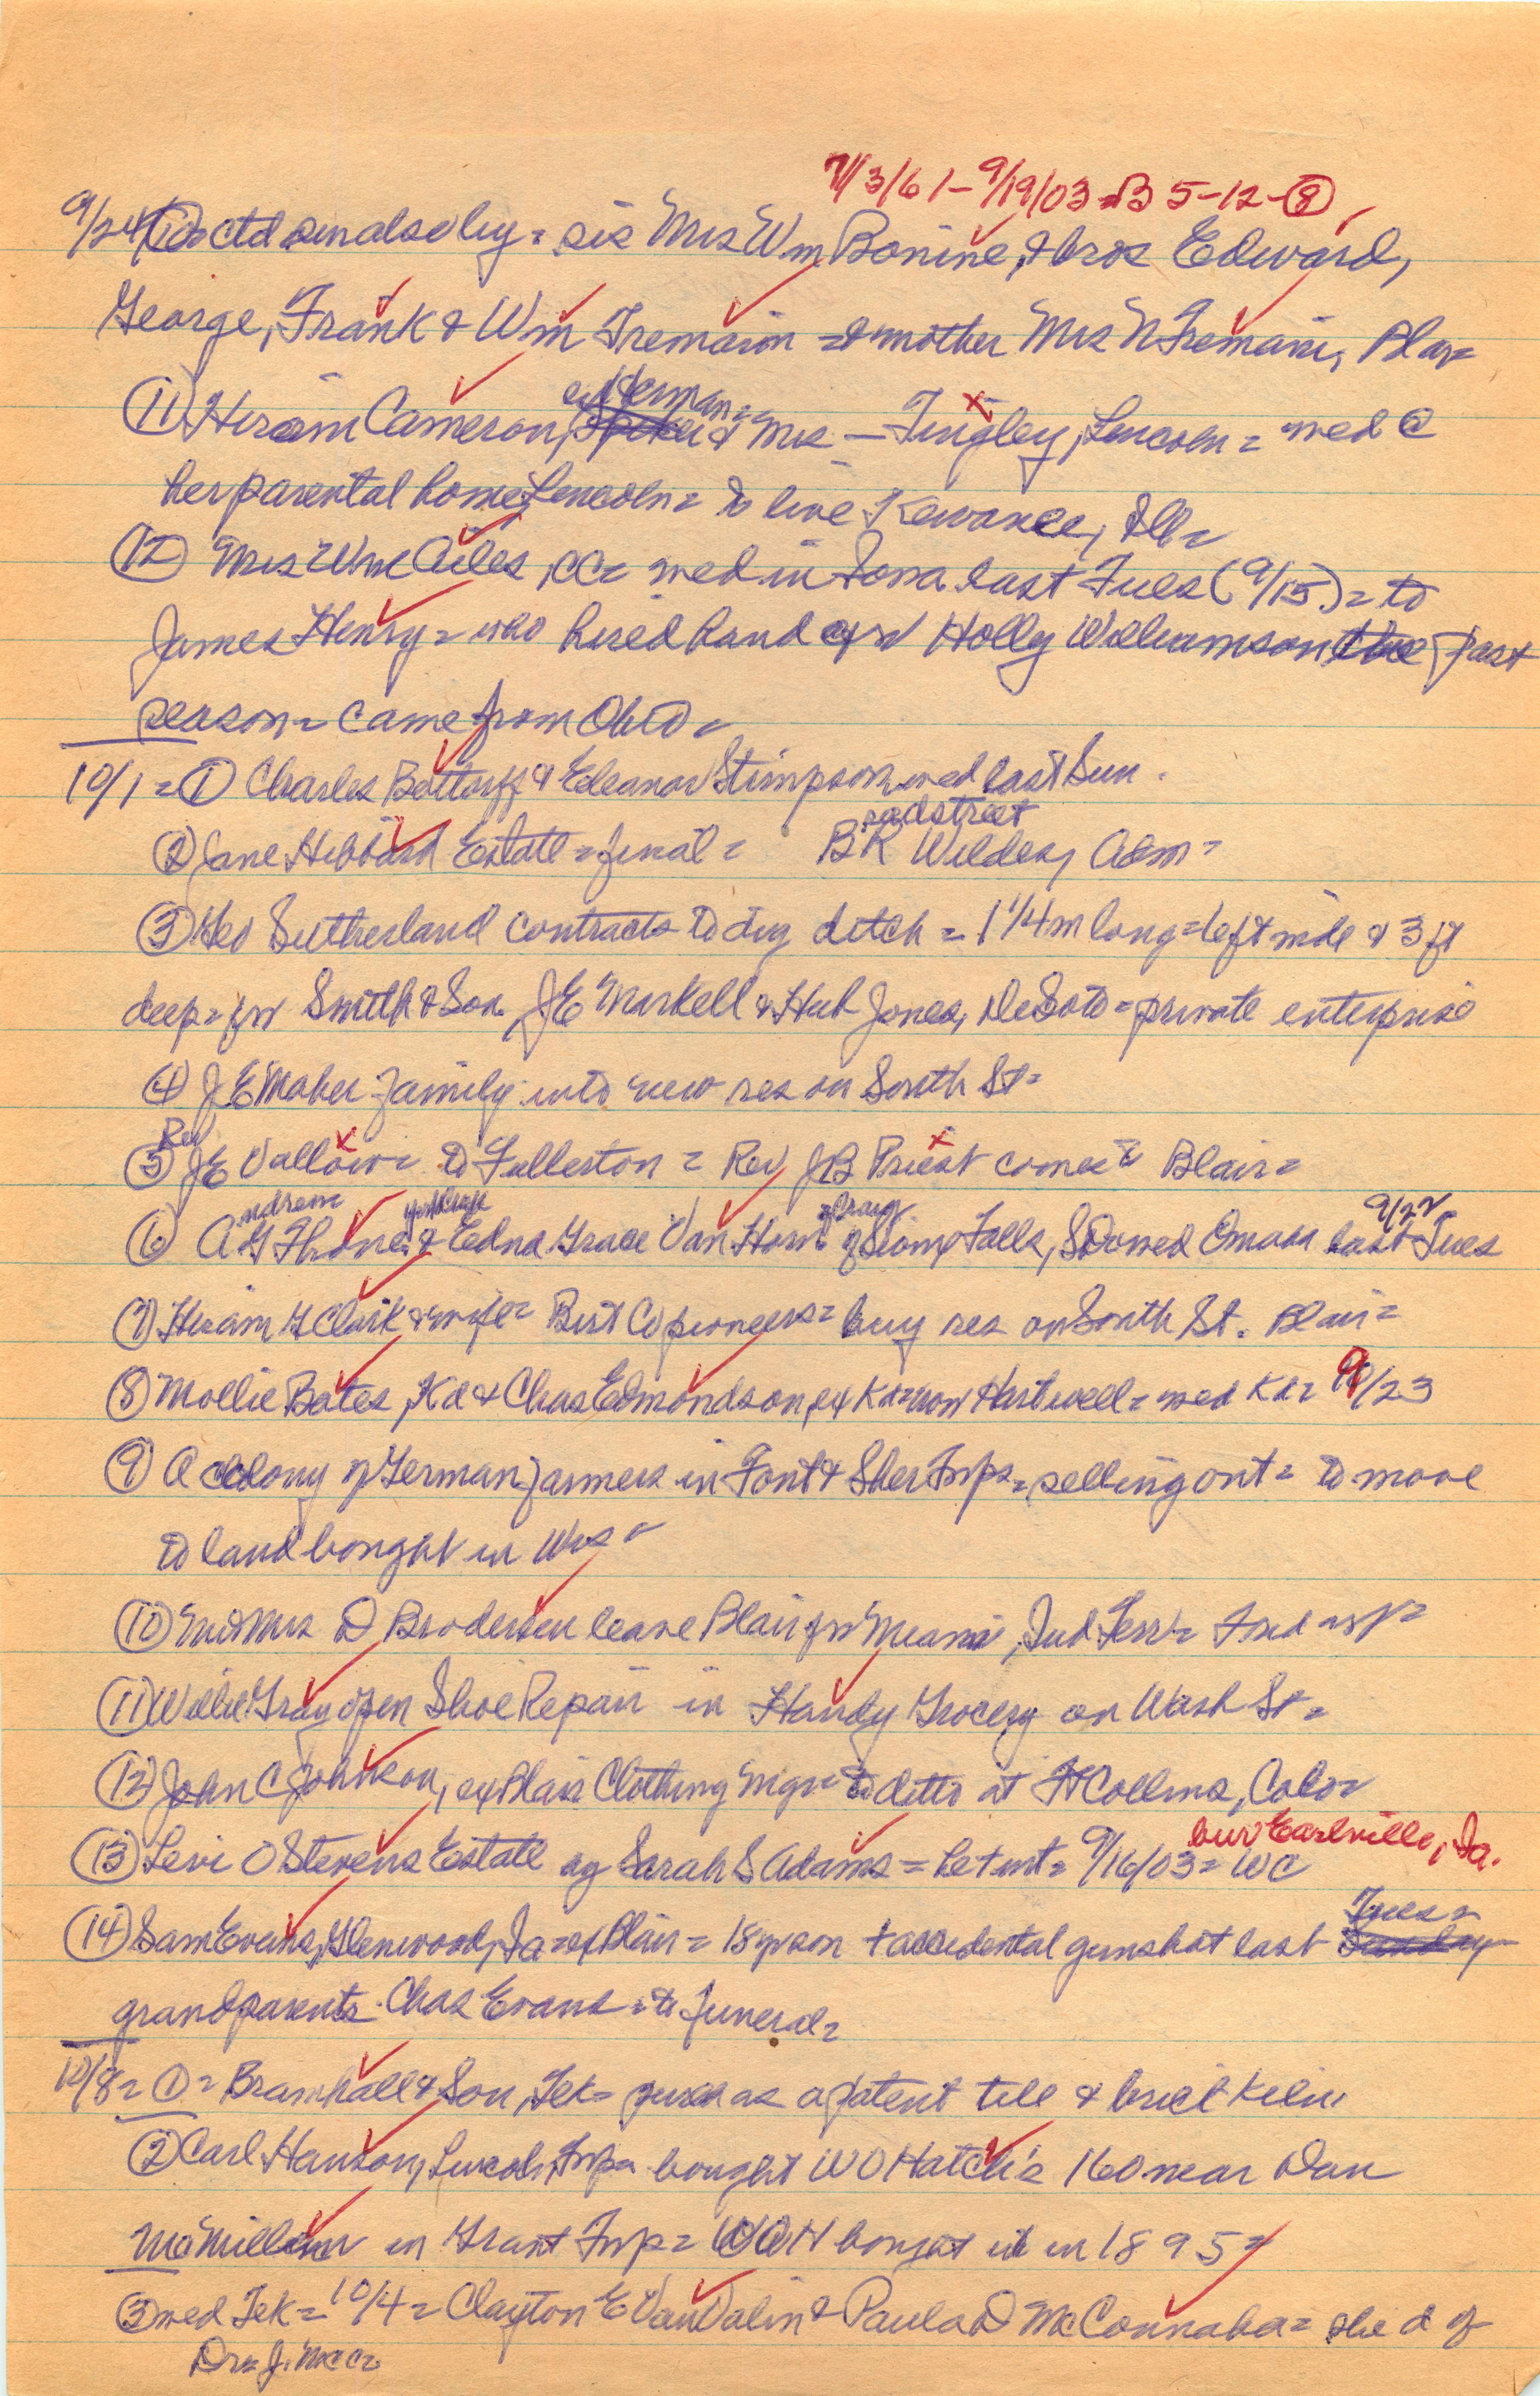 7/3/61-9/19/03=B 5-12-⑧
9/24 ⑩ ctd = sis Mrs Wm Bonine, & bros Edward,
George, Frank & Wm Tremain = & mother Mrs N Tremain, Blair=
⑪ Hiram Cameron, ex Herman= & Mrs — Tingley, Lincoln = med @
her parental home, Lincoln = to live Kewanee, Ill=
⑫ Mrs Wm Ailes, CC= wed in Iowa last Tues (9/15) = to
James Henry = who hired hand for Holly Williamson past
season = came from Ohio=
10/1 = ① Charles Bottorff & Eleanor Stimpson wed last Sun.
② Jane Hibbard Estate = final = B radstreet R Wilder, Adm=
③ Geo Sutherland contracts to dig ditch = 1 1/4 m long = 6 ft wide & 3 ft
deep = for Smith & Son. J E Markell & Hub Jones, DeSoto = private enterprise
④ J E Maher family into new res on South St=
⑤ Rev J E Vallow = to Fullerton = Rev J B Priest comes to Blair=
⑥ A ndrew G Thone, & Edna Grace Van Horn of Sioux Falls, SD wed Omaha last Tues 9/22
⑦ Hiram G Clark & wife = Burt Co pioneers = buy res on South St. Blair=
⑧ Mollie Bates, Kd & Chas Edmondson, ex Kd = now Hartwell = wed Kd = 9/23
⑨ A colony of German farmers in Font & Sher Twps = selling out = to move
to land bought in Wis=
⑩ Mr & Mrs D Brodersen leave Blair for Miami, Ind Terr =
⑪ Willie Gray open Shoe Repair in Handy Grocery on Wash St=
⑫ John C Johnson, ex Blair Clothing Mgr = to ditto at Ft Collins, Colo=
⑬ Levi O Stevens Estate ag Sarah S Adams = het int = 9/16/03 = WC bur Earlville, Ia.
⑭ Sam Evans, Glenwood, Ia = ex Blair = 18 yr son + accidental gunshot last Tues=
grandparents Chas Evans = to funeral=
10/8 = ① = Bramhall & Son, Tek = purchas a patent tile & brick kiln
② Carl Hanson, Lincoln Twp = bought W O Hatch's 160 near Dan
McMillan in Grant Twp = WOH bought it in 1895=
③ wed Tek = 10/4 = Clayton E Van Valin & Paula D McConnaha = she d of
Dr J. McC=